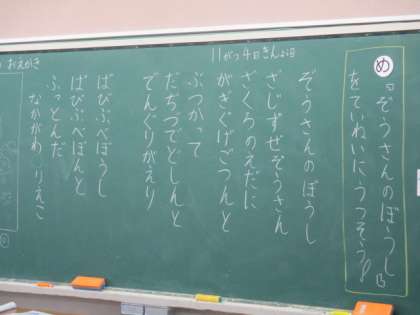 め
「ぞうさんのぼうし」
をていねいにうつそう。
11がつ4日きんよう日
ぞうさんのぼうし
ざじずぜぞうさん
ざくろのえだに
がぎぐげごつんと
ぶつかって
だぢづでどしんと
でんぐりがえり
ばびぶべぼうし
ぱぴぷぺぽんと
ふっとんだ
なかがわ りえこ
おえかき